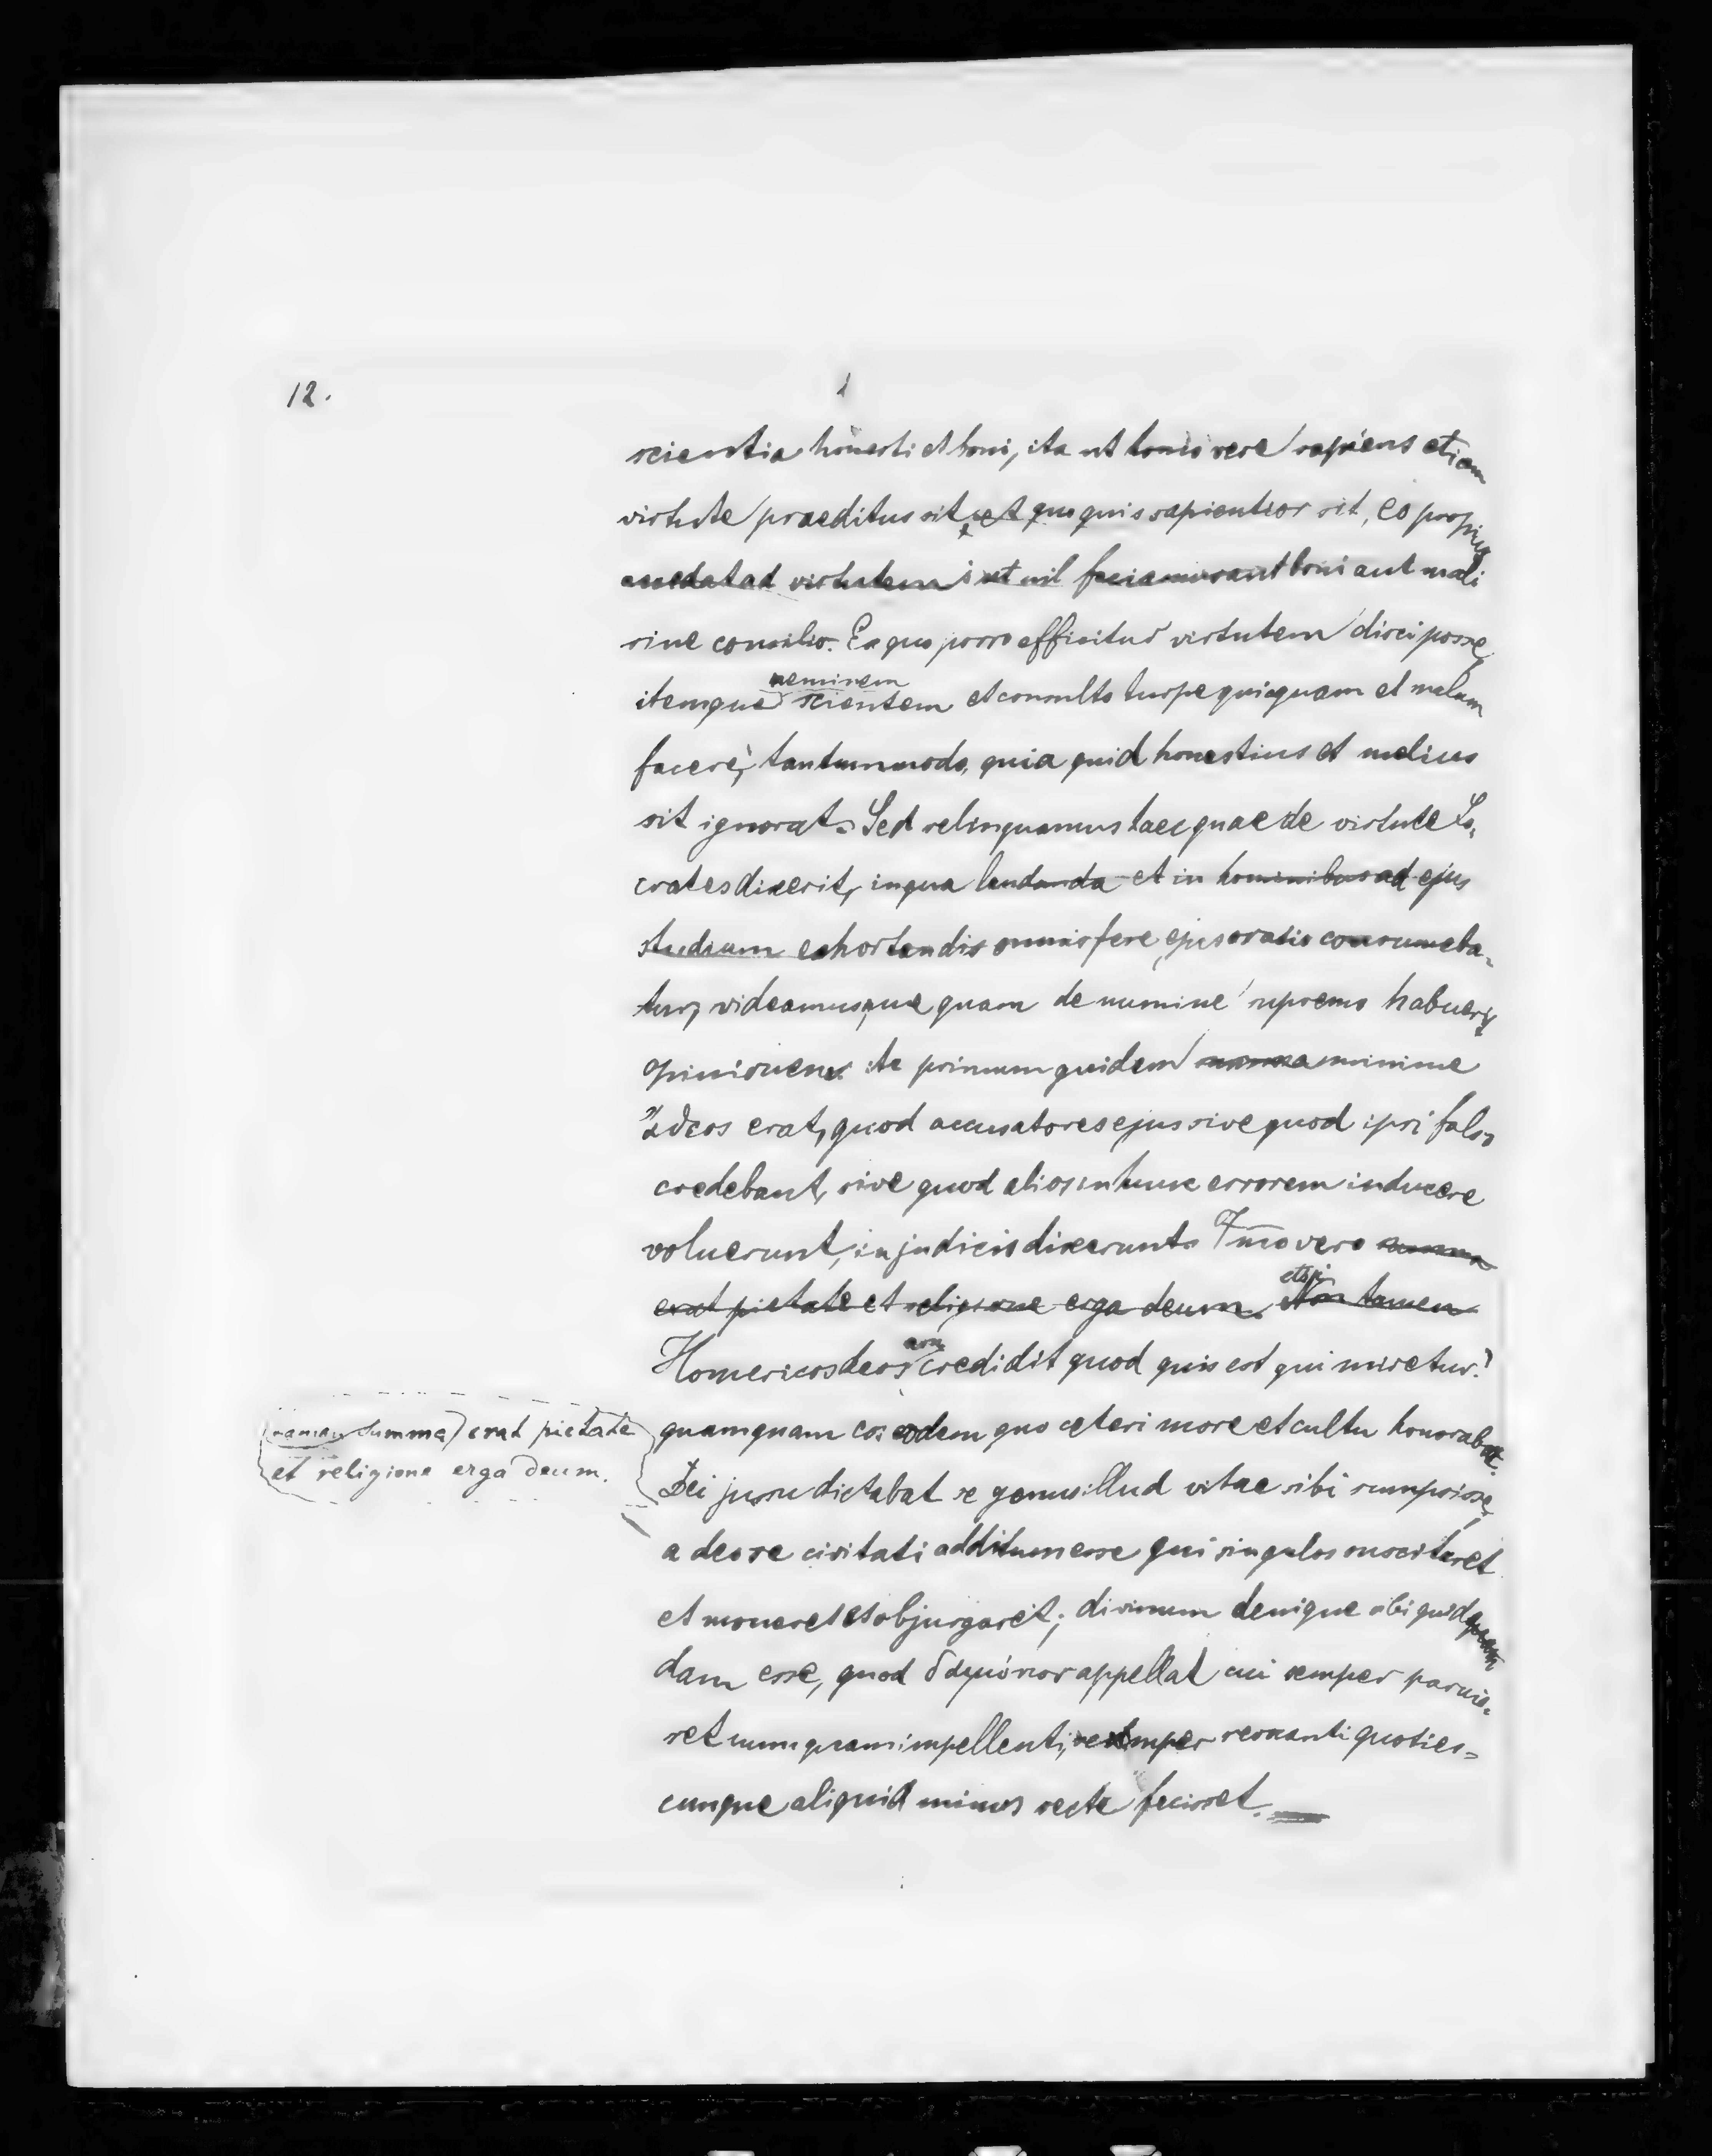 12.
scientia honesti et boni, ita ut homo vere sapiens etiam
virtute praeditus sit, et quo quis sapientior sit, eo propius
accedat ad virtutem; et nil faciamus aut boni aut mali
sine consilio. Ex quo porro efficitur virtutem disci posse,
neminem
itemque scientem et consulto turpe quicquam et malum
facere, tantummodo, quia quid honestius et melius
sit ignorat. Sed relinquamus haec quae de virtute So-
crates dixerit, in qua laudanda et in hominibus ad ejus
studium exhortandis omnis fere ejus oratio consumeba-
tur, videamusque quam de numine supremo habuerit
opinionem. primum quidem minime
ἄθεος erat, quod accusatores ejus sive quod ipsi falso
credebant, sive quod alios in hunc errorem inducere
voluerunt, in judiciis dixerunt. Imo vero summa
etsi
erat pietate et religione erga deum. Non tamen
non
Homericos deos credidit quod quis est qui miretur?
tamen summa erat pietate
et religione erga deum.
quamquam eos eodem quo ceteri more et cultu honorabat.
Dei jussu dictabat se genus illud vitae sibi sumpsisse,
a deo se civitati additum esse qui singulos suscitaret
et moneret et objurgaret; divinum denique sibi quid
dam esse, quod δαιμόνιον appellat cui semper paruis-
set numquam impellenti, semper revocanti quoties-
cunque aliquid minus recte fecisset.